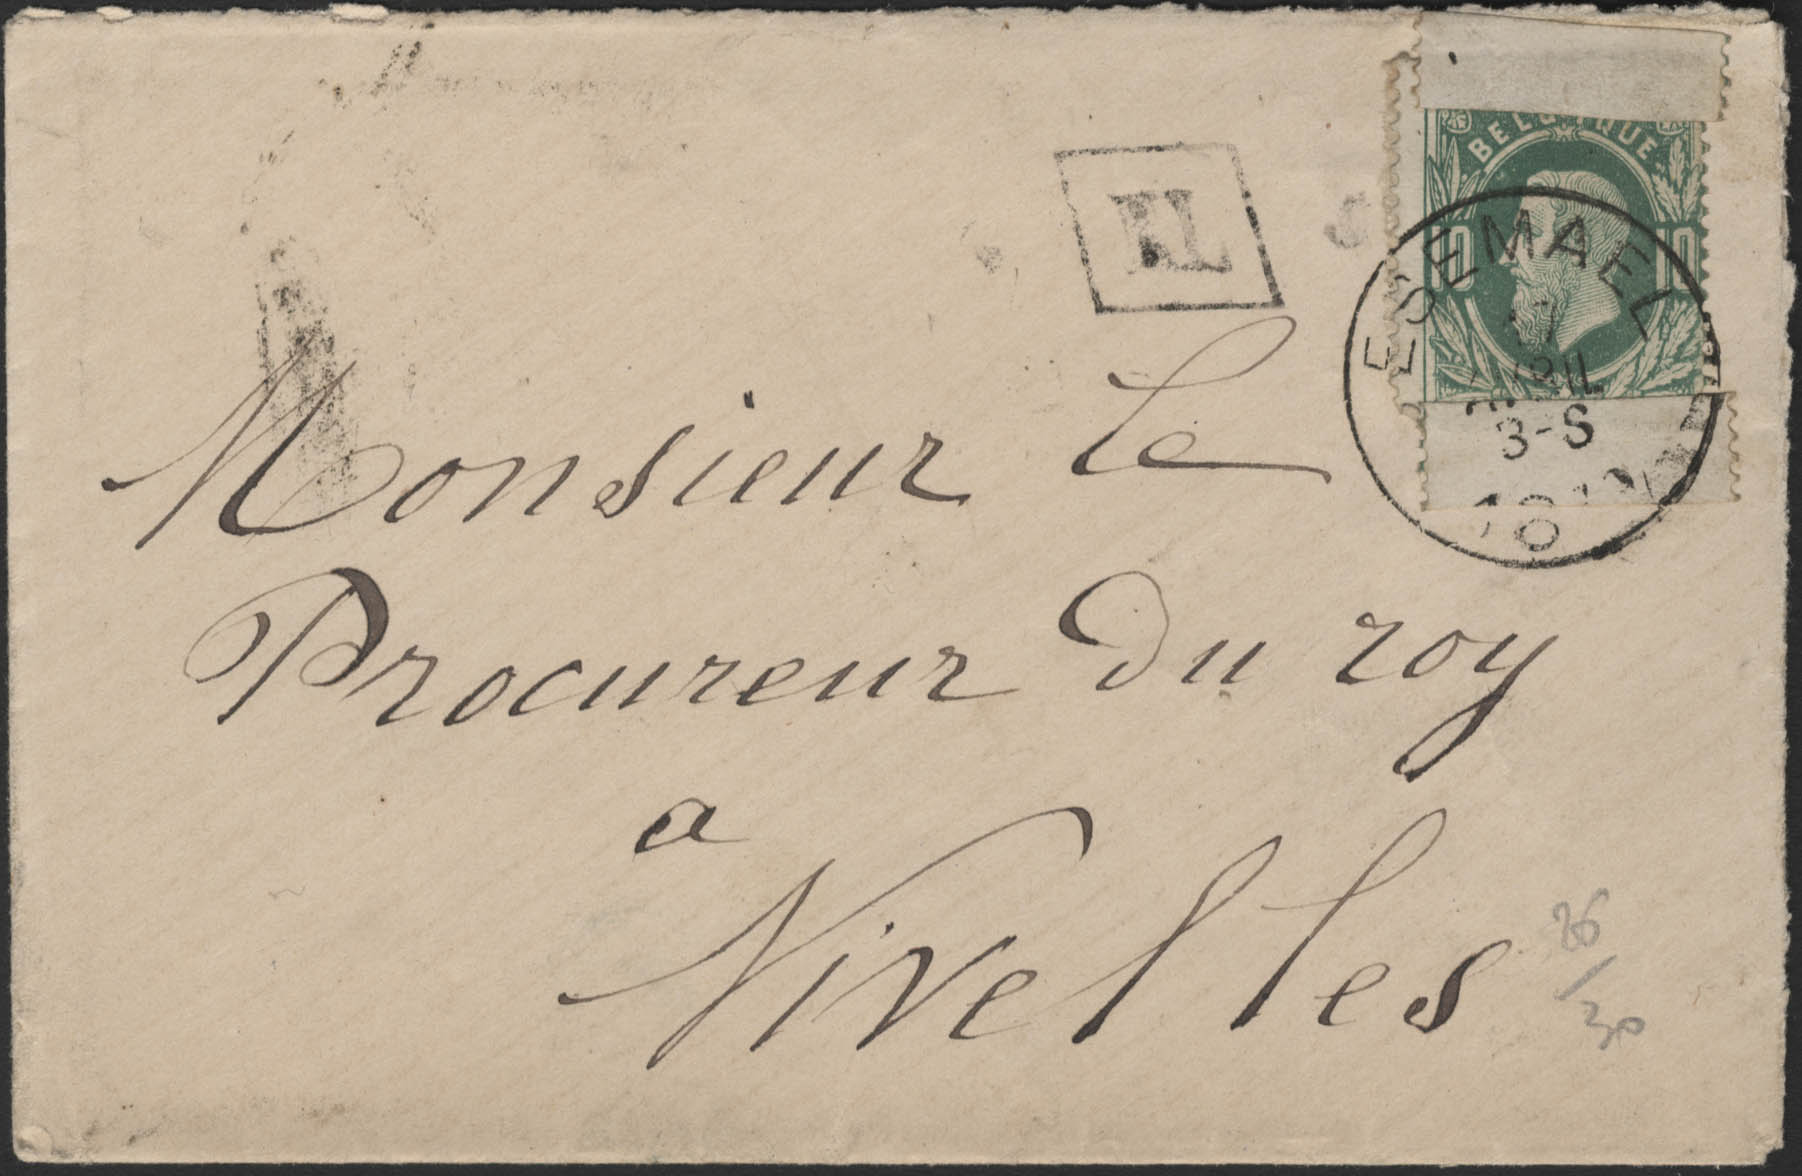 BELGIQUE
10 10
ESEMAEL
AVRIL
3-S
18
Monsieur le
Procureur du roy
a
Nivelles
26
/
30